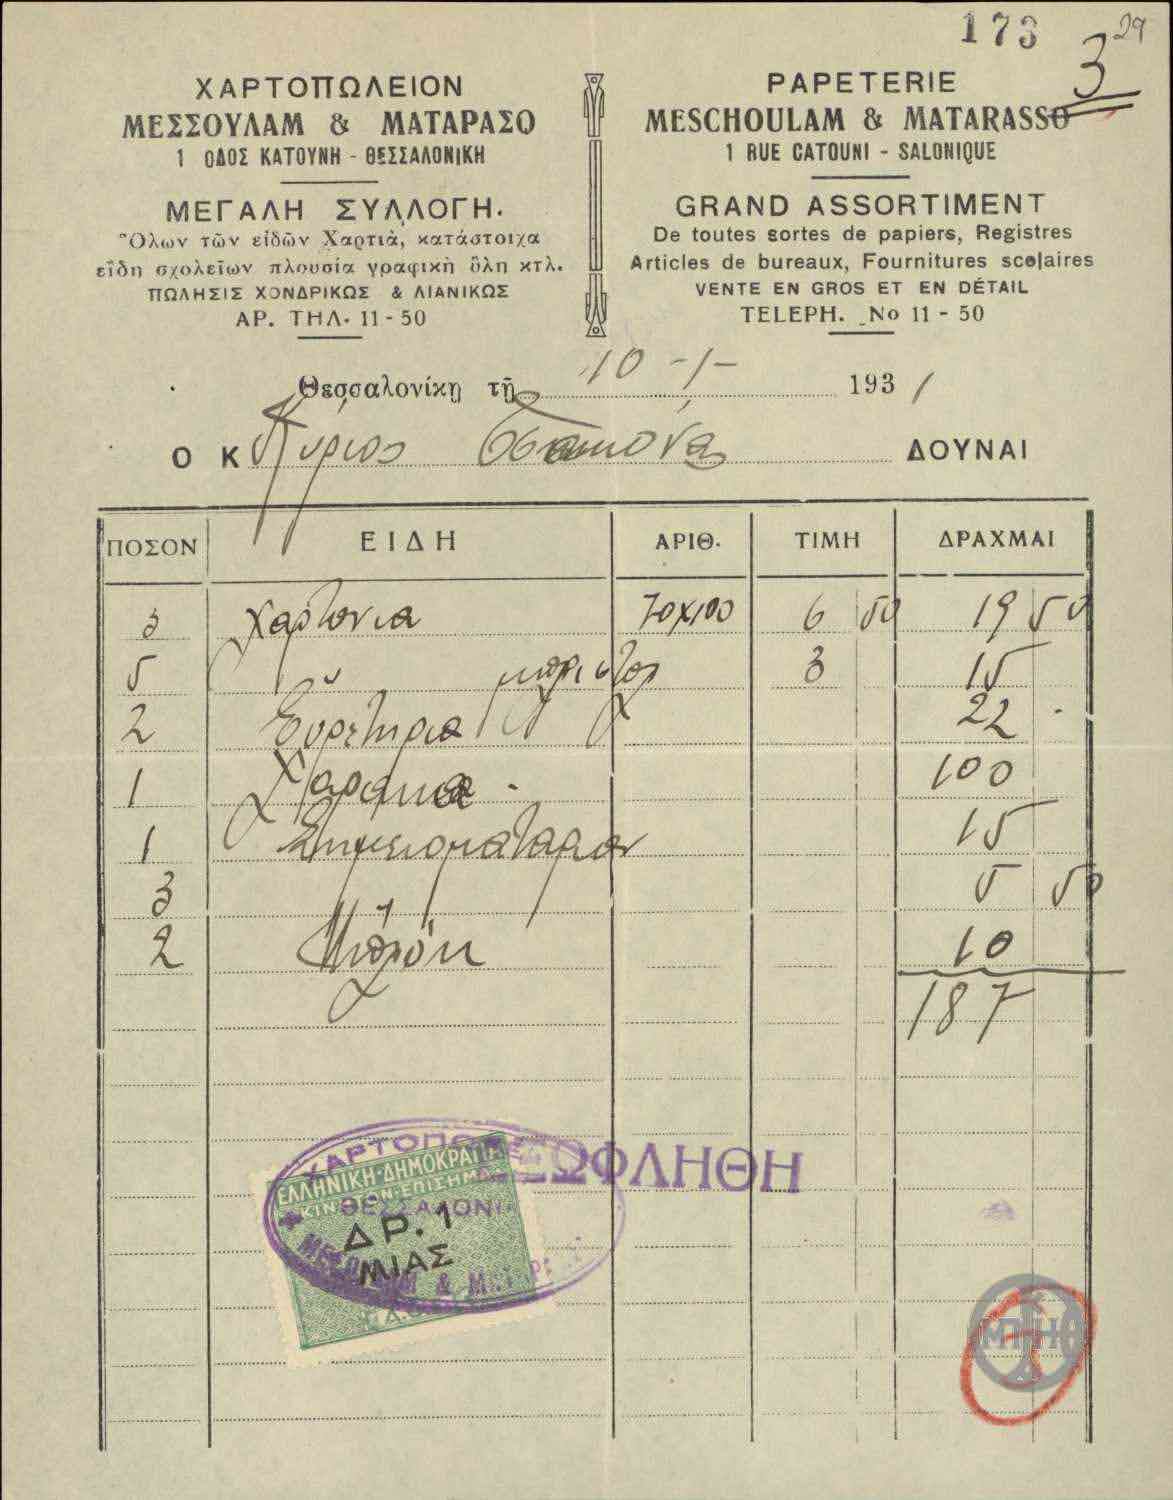 173
3
29
ΧΑΡΤΟΠΩΛΕΙΟΝ
ΜΕΣΣΟΥΛΑΜ & ΜΑΤΑΡΑΣΟ
1 ΟΔΟΣ ΚΑΤΟΥΝΗ - ΘΕΣΣΑΛΟΝΙΚΗ
ΜΕΓΑΛΗ ΣΥΛΛΟΓΗ.
Ὅλων τῶν εἰδῶν Χαρτιὰ, κατάστοιχα
εἴδη σχολείων πλουσία γραφικὴ ὕλη κτλ.
ΠΩΛΗΣΙΣ ΧΟΝΔΡΙΚΩΣ & ΛΙΑΝΙΚΩΣ
ΑΡ. ΤΗΛ. 11 - 50
PAPETERIE
MESCHOULAM & MATARASSO
1 RUE CATOUNI - SALONIQUE
GRAND ASSORTIMENT
De toutes sortes de papiers, Registres
Articles de bureaux, Fournitures scolaires
VENTE EN GROS ET EN DÉTAIL
TELEPH. No 11 - 50
Θεσσαλονίκη τῇ 10 -1- 1931
Ο Κ Κύριος ΔΟΥΝΑΙ
ΠΟΣΟΝ ΕΙΔΗ ΑΡΙΘ. ΤΙΜΗ ΔΡΑΧΜΑΙ
3 Χαρτονια 70x100 6 50 19 50
5 3 15
2 Εὑρετηρια 22 -
1 Χαρακα 100
1 Σημειοματαριον 15
3 5 50
2 Μπλόκ 10
187
ΕΞΩΦΛΗΘΗ
ΧΑΡΤΟΠΩΛΕ
ΕΛΛΗΝΙΚΗ·ΔΗΜΟΚΡΑΤΙΑ
ΚΙΝΗΤΟΝ·ΕΠΙΣΗΜΑ
ΘΕΣΣΑΛΟΝΙ
ΔΡ. 1
ΜΙΑΣ